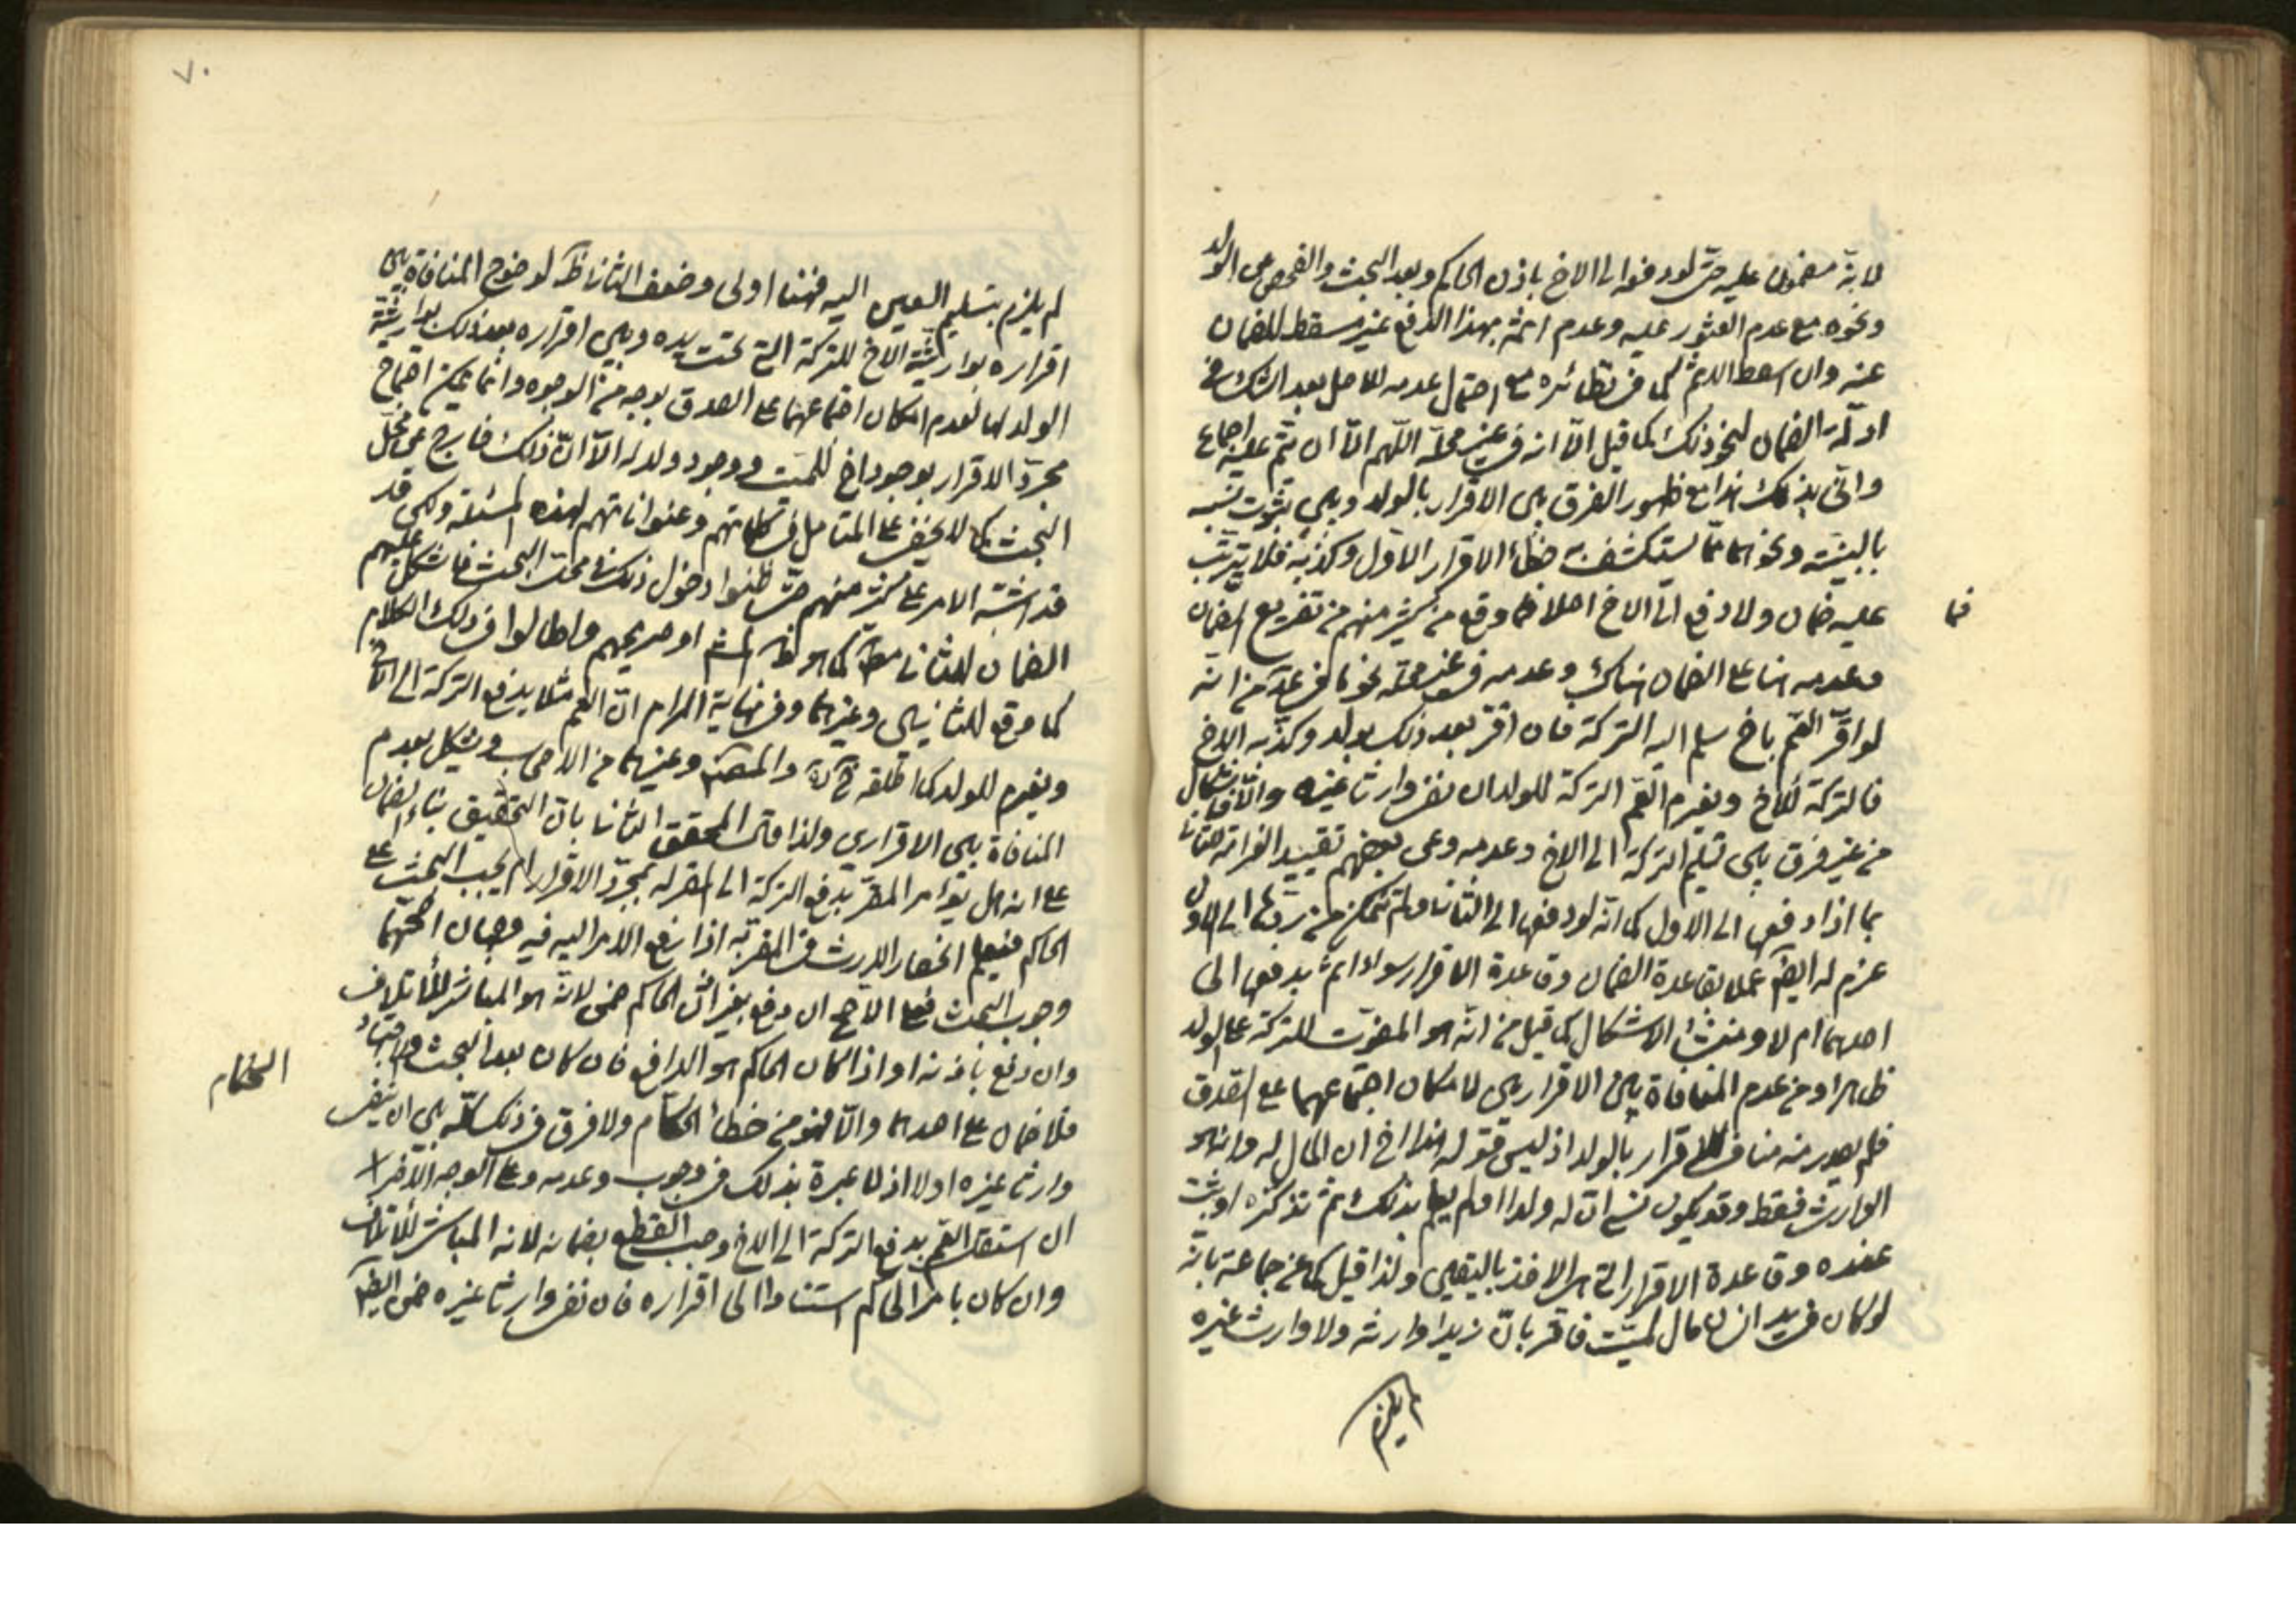 لانه مضمون عليه حتى لو دفعه الى الاخ باذن الحاكم وبعد البحث والفحص عن الولد
ونحوه مع عدم العثور عليه وعدم اثمه بهذا الدفع غير مسقط للضمان
عنه وان اسقط الاثم كما في نظائره مع احتمال عدمه للاصل بعد الشك في
ادلة الضمان لنحو ذلك كما قيل الّا انه في غير محلّه اللهم الّا ان يتم عليه اجماع
وانّى بذلك هذا مع ظهور الفرق بين الاقرار بالولد وبين ثبوت نسبه
بالبينة ونحوها ممّا يستكشف به خطاء الاقرار الاول وكذبه فلا يترتب
عليه ضمان ولا دفع الى الاخ اصلا فما وقع من كثير منهم من تفريع الضمان
فما
وعدمه هنا على الضمان هناك وعدمه في غير محلّه نحو ما في عد من انه
لو اقرّ العم باخ سلم اليه التركة فان اقر بعد ذلك بولد وكذّبه الاخ
فالتركة للاخ ويغرم العم التركة للولد ان نفى وارثا غيره والّا فاشكال
من غير فرق بين تسليم التركة الى الاخ وعدمه وعن بعضهم تقييد الغرامة هنا
بما اذا دفعها الى الاول كما انه لو دفعها الى الثاني ولم يتمكن من ردّها الى الاول
غرم له ايضا عملا بقاعدة الضمان وقاعدة الاقرار سواء اثم بدفعها الى
احدهما ام لا ومنشأ الاشكال كما قيل من انه هو المفوّت للتركة على الولد
ظاهرا ومن عدم المنافاة بين الاقرارين لامكان اجتماعهما على الصدق
فلم يصدر منه مناف للاقرار بالولد اذ ليس قوله هذا اخ ان المال له وانه هو
الوارث فقط وقد يكون نسي انّ له ولدا او لم يعلم بذلك ثم تذكره او ثبت
عنده وقاعدة الاقرار التي هي الاخذ باليقين ولذا قيل كما عن جماعة بانه
لو كان في يد انسان مال لميّت فاقر بانّ زيدا وارثه ولا وارث غيره
لم يلزم
٧٠
لم يلزم بتسليم العين اليه فهنا اولى وضعف الثاني ظ لوضوح المنافاة بين
اقراره بوارثيّة الاخ للتركة التي تحت يده وبين اقراره بعد ذلك بوارثيّة
الولد لها لعدم امكان اجتماعهما على الصدق بوجه من الوجوه وانّما يمكن اجتماع
مجرّد الاقرار بوجود اخ للميّت ووجود ولد له الّا انّ ذلك خارج عن محل
البحث كما لا يخفى على المتامل في كلماتهم وعنواناتهم لهذه المسئلة ولكن قد
قد اشتبه الامر على كثير منهم حتى ظنوا دخول ذلك في محل البحث فاشكل عليهم
الضمان للثاني مط كما هو ظ او صريحهم واطالوا في ذلك الكلام
كما وقع للثانيين وغيرهما وفي نهاية المرام انّ العم مثلا يدفع التركة الى الاخ
ويغرم للولد كما اطلقه والمص وغيرهما من الاصحاب ويشكل بعدم
المنافاة بين الاقرارين ولذا قال المحقق الثاني بانّ التحقيق بناء الضمان
على انه هل يؤمر المقرّ بدفع التركة الى المقر له بمجرّد الاقرار ام يجب البحث على
الحاكم فيعلم انحصار الارث في المقر به اذا رفع الامر اليه فيه وجهان اصحّهما
وجوب البحث فعلى الاصح ان دفع بغير اذن الحاكم ضمن لانه هو المباشر للاتلاف
وان دفع باذنه او اذا كان الحاكم هو الدافع فان كان بعد البحث والاجتهاد
فلا ضمان على احدهما والّا فهو من خطأ الحكّام ولا فرق في ذلك كلّه بين ان ينفى
الحكام
وارثا غيره اولا اذ لا عبرة بذلك في وجوب وعدمه وعلى الوجه الآخر
ان استقل العم بدفع التركة الى الاخ وجب القطع بضمانه لانه المباشر للاتلاف
وان كان بامر الحاكم استنادا الى اقراره فان نفى وارثا غيره ضمن ايضا